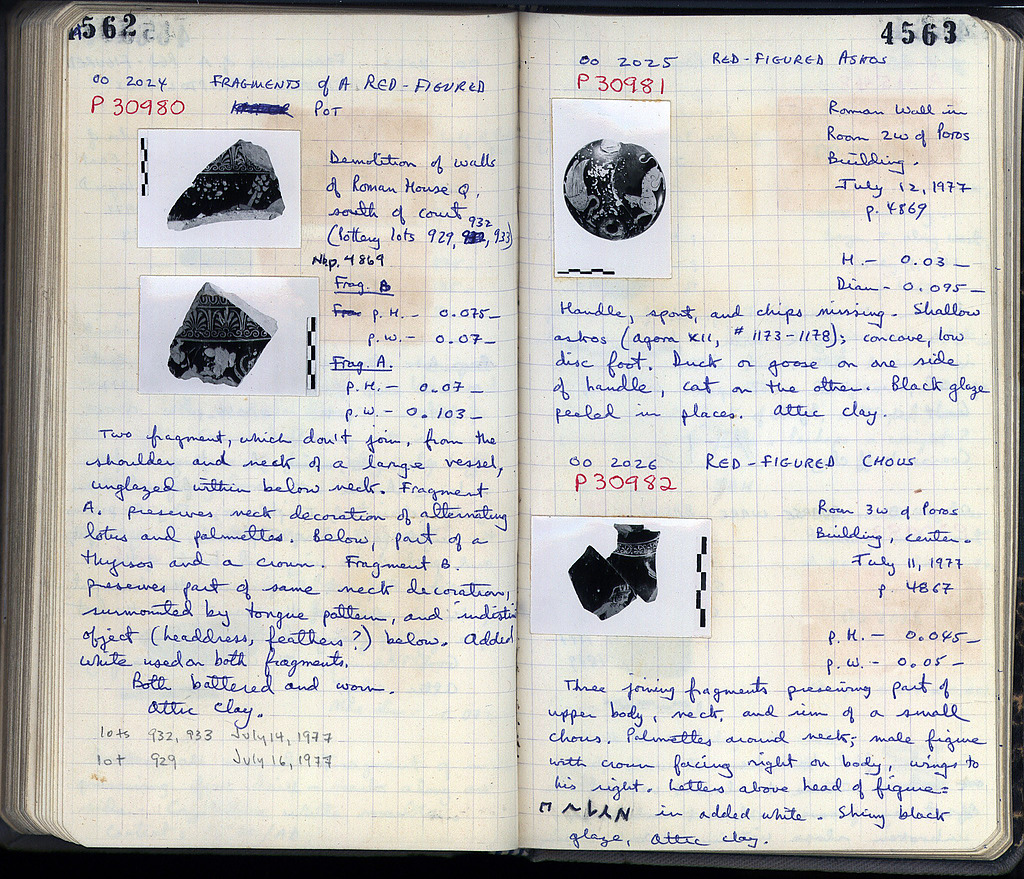 4562
OO 2024 FRAGMENTS of A RED-FIGURED
P 30980 POT
Demolition of walls
of Roman House Q,
south of court
932
(Pottery lots 929, 933)
Nbp. 4869
Frag. B
Frag. p. H. — 0.075 —
p. W. — 0.07 —
Frag. A.
p. H. — 0.07 —
p. W. — 0.103 —
Two fragment, which don't join, from the
shoulder and neck of a large vessel,
unglazed within below neck. Fragment
A. preserves neck decoration of alternating
lotus and palmettes. Below, part of a
thyrsos and a crown. Fragment B.
preserves part of same neck decoration,
surmounted by tongue pattern, and indistin
object (headdress, feathers?) below. Added
white used on both fragments.
Both battered and worn.
Attic clay.
lots 932, 933 July 14, 1977
lot 929 July 16, 1977
4563
OO 2025 RED-FIGURED ASKOS
P 30981
Roman Wall in
Room 2W of Poros
Building.
July 12, 1977
p. 4869
H. — 0.03 —
Diam — 0.095 —
Handle, spout, and chips missing. Shallow
askos (Agora XII, # 1173-1178); concave, low
disc foot. Duck or goose on one side
of handle, cat on the other. Black glaze
peeled in places. Attic clay.
OO 2026 RED-FIGURED CHOUS
P 30982
Room 3W of Poros
Building, center.
July 11, 1977
p. 4867
p. H. — 0.045 —
p. W. — 0.05 —
Three joining fragments preserving part of
upper body, neck, and rim of a small
chous. Palmettes around neck; male figure
with crown facing right on body, wings to
his right. Letters above head of figure:
in added white. Shiny black
glaze, Attic clay.